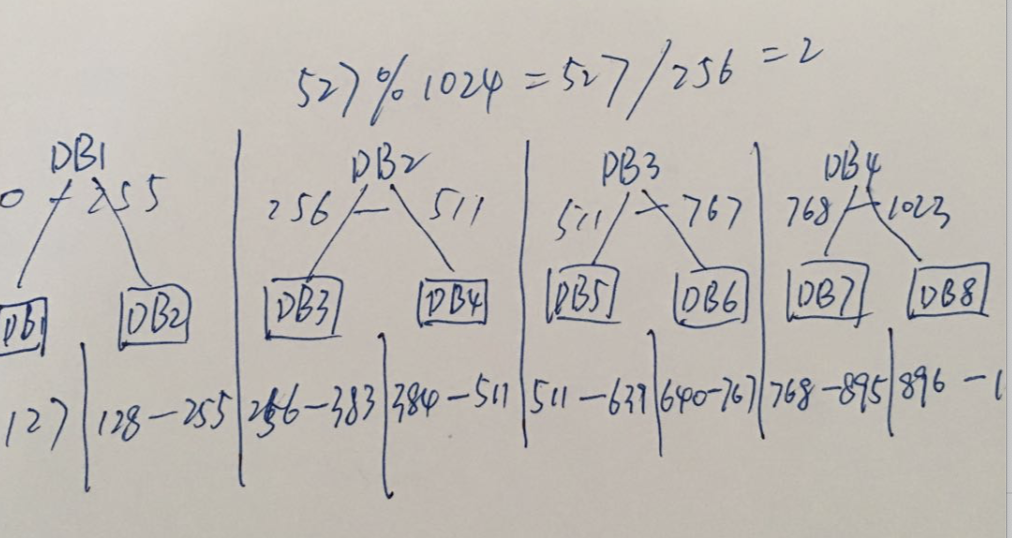 527%1024 = 527/256 = 2
DB1 DB2 DB3 DB4
0 - 255 256 - 511 511 - 767 768 - 1023
DB1 DB2 DB3 DB4 DB5 DB6 DB7 DB8
127 128-255 256-383 384-511 511-639 640-767 768-895 896-1